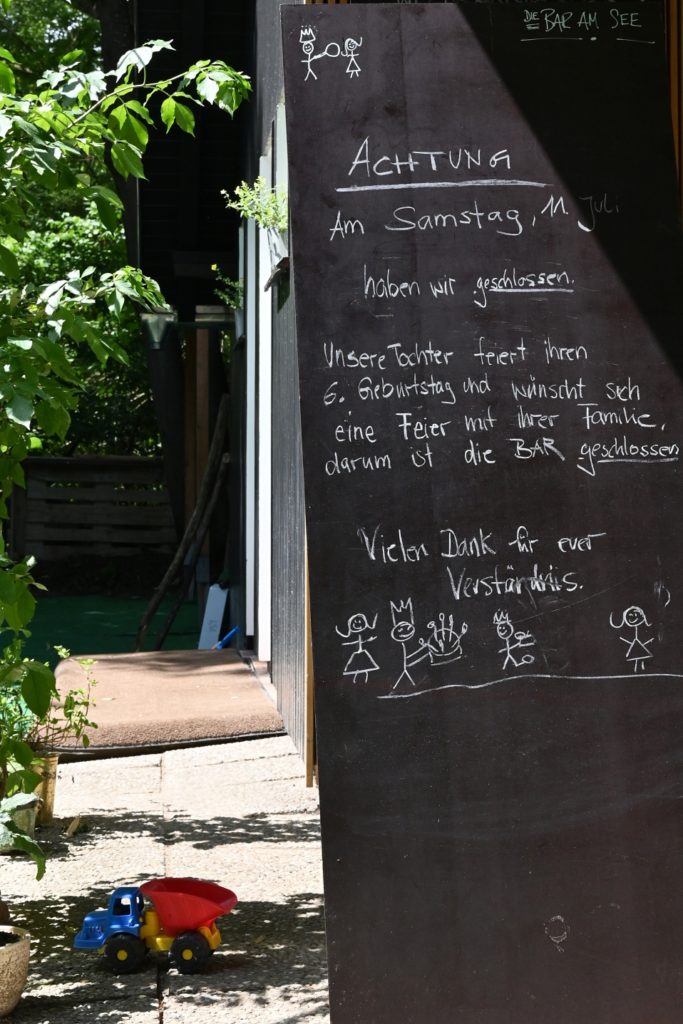 DIE BAR AM SEE
ACHTUNG
Am Samstag, 11. Juli
haben wir geschlossen.
Unsere Tochter feiert ihren
6. Geburtstag und wünscht sich
eine Feier mit ihrer Familie,
darum ist die BAR geschlossen
Vielen Dank für euer
Verständnis.